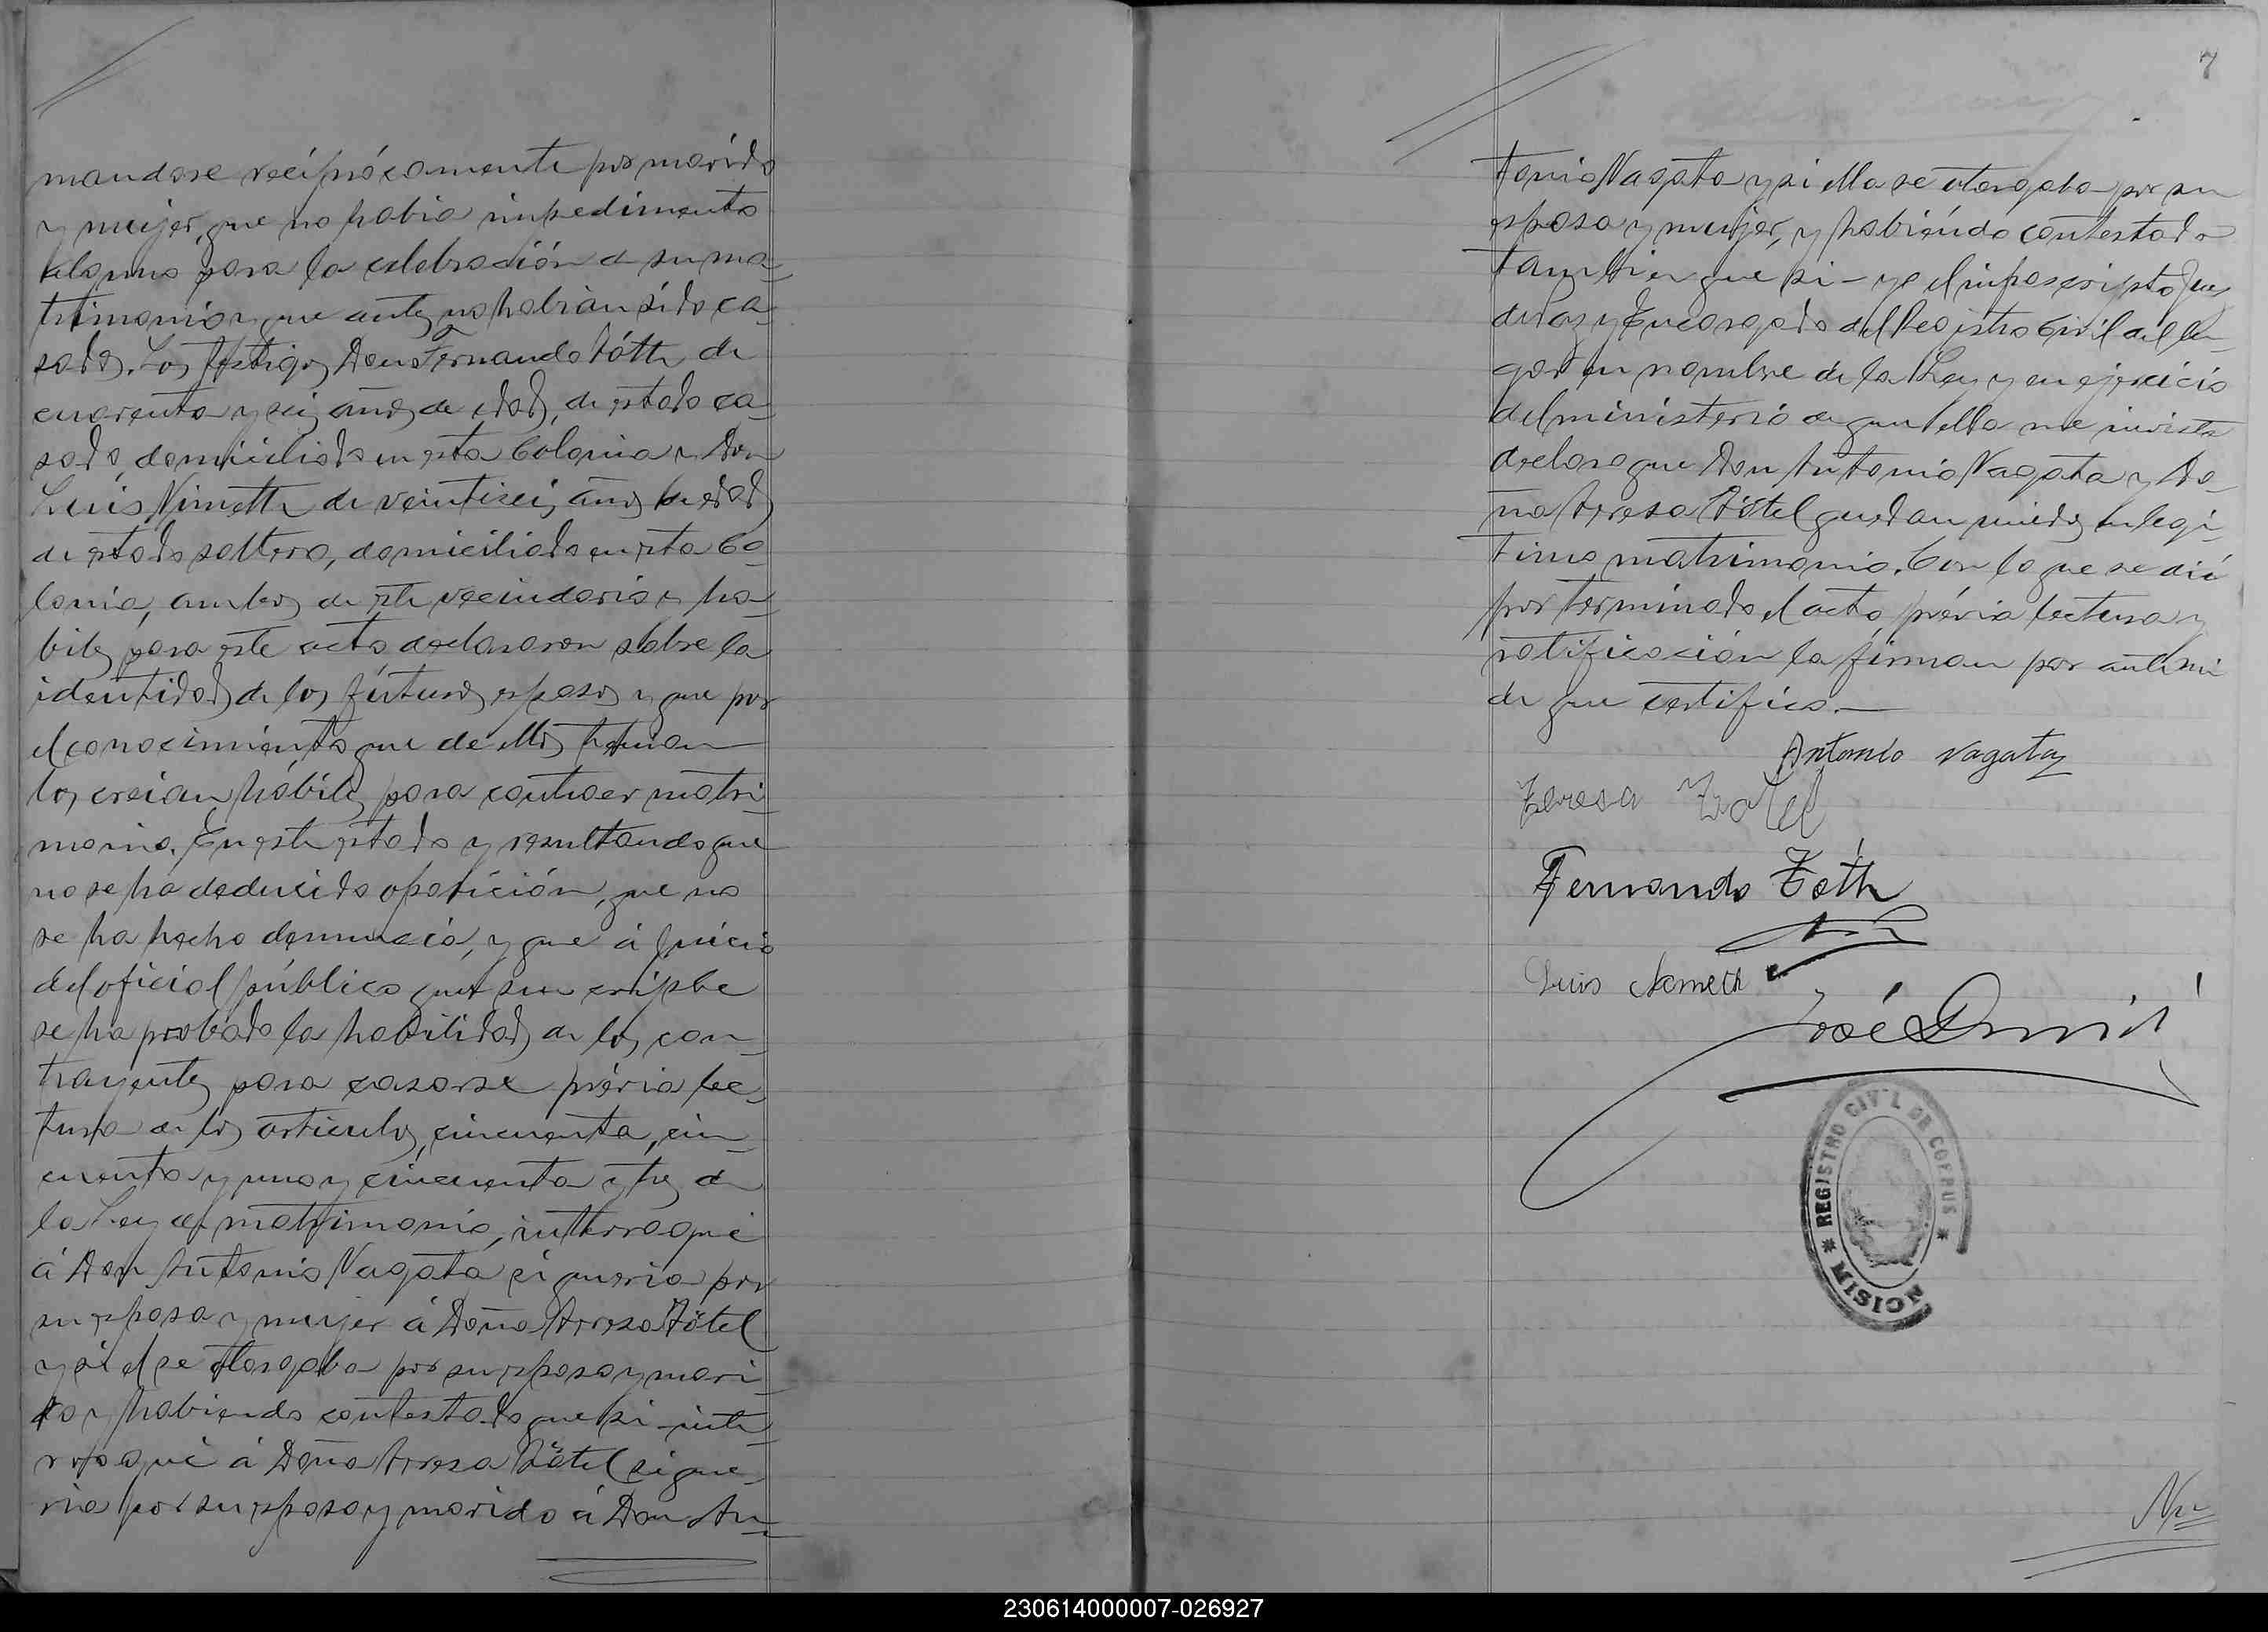 mandose recíprócamente por marido
y mujer, que no habia impedimento
alguno para la celebración de su ma-
trimonio y que antes no habian sido ca-
sados. Los testigos Don Fernando Tóth de
cuarenta y seis años de edad, de estado ca-
sado, domiciliado en esta Colonia y Don
Luis Nimeth de veintiseis años de edad
de estado soltero, domiciliado en esta Co-
lonia, ambos de este vecindario y ha-
biles para este acto declararon sobre la
identidad de los fúturos esposos y que por
el conocimiento que de ellos tenian
los creian hábiles para contraer matri-
monio. En este estado y resultando que
no se ha deducido oposición, que no
se ha hecho denuncia, y que á juicio
del oficial público que suscripbe
se ha probado la habilidad de los con-
trayentes para casarse prévia lec-
tura de los articulos, cincuenta, cin-
cuenta y uno y cincuenta y tres de
la Ley de matrimonio, interrogué
á Don Antonio Nagata si queria por
su esposa y mujer á Doña Teresa Tótel
y si el se otorgaba por su esposo y mari-
do y habiendo contestado que si - inte-
rrogué á Doña Teresa Tótel si que-
ria por su esposo y marido á Don An-
7
tonio Nagata y si ella se otorgaba por su
esposa y mujer, y habiéndo contestado
tambien que si - yo el infrascripto Juez
de Paz y Encargado del Registro Civil del lu-
gar en nombre de la Ley y en ejercicio
del ministerio de que ella me inviste
declaro que Don Antonio Nagata y Do-
ña Teresa Tótel quedan unidos en legi-
timo matrimonio. Con lo que se dió
por terminado el acto prévia lectura y
ratificación la firman por ante mi
de que certifico.—
Antonio Nagata
Teresa
Fernando Tóth
Luis Nemeth
José
REGISTRO CIVIL DE COFRUS
MISIONES